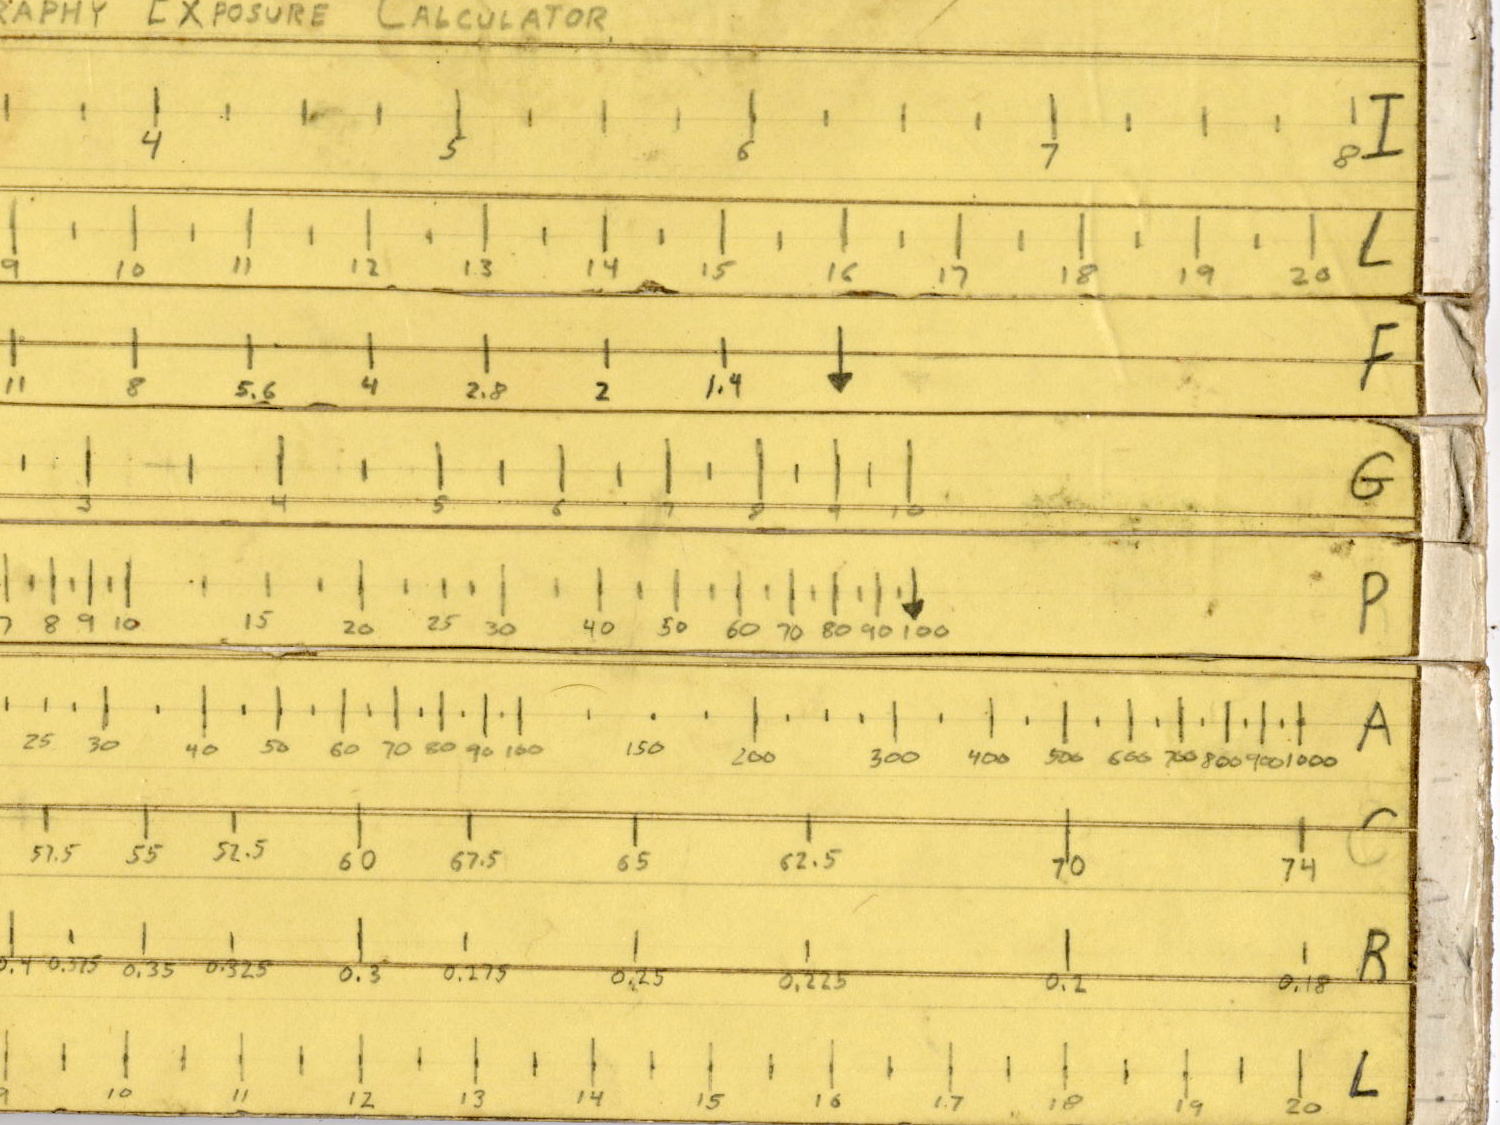 RAPHY EXPOSURE CALCULATOR
4 5 6 7 8 I
9 10 11 12 13 14 15 16 17 18 19 20 L
11 8 5.6 4 2.8 2 1.4 F
3 4 5 6 7 8 9 10 G
7 8 9 10 15 20 25 30 40 50 60 70 80 90 100 P
25 30 40 50 60 70 80 90 100 150 200 300 400 500 600 700 800 900 1000 A
57.5 55 52.5 60 67.5 65 62.5 70 74 C
0.4 0.375 0.35 0.325 0.3 0.275 0.25 0.225 0.2 0.18 R
9 10 11 12 13 14 15 16 17 18 19 20 L